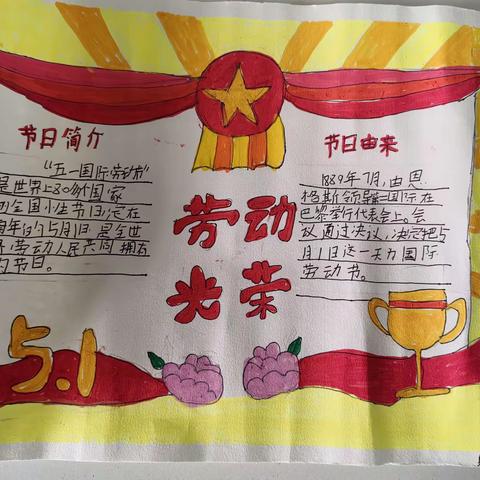 节日简介
"五一国际劳动节"
是世界上80多个国家
的全国小生节日,定在
每年的5月1日,是全世
界劳动人民共同拥有
的节日。
劳动
光荣
节日由来
1889年7月,由恩
格斯领导第二国际在
巴黎举行代表会上。会
议通过决议,决定把5
月1日这一天为国际
劳动节。
5.1